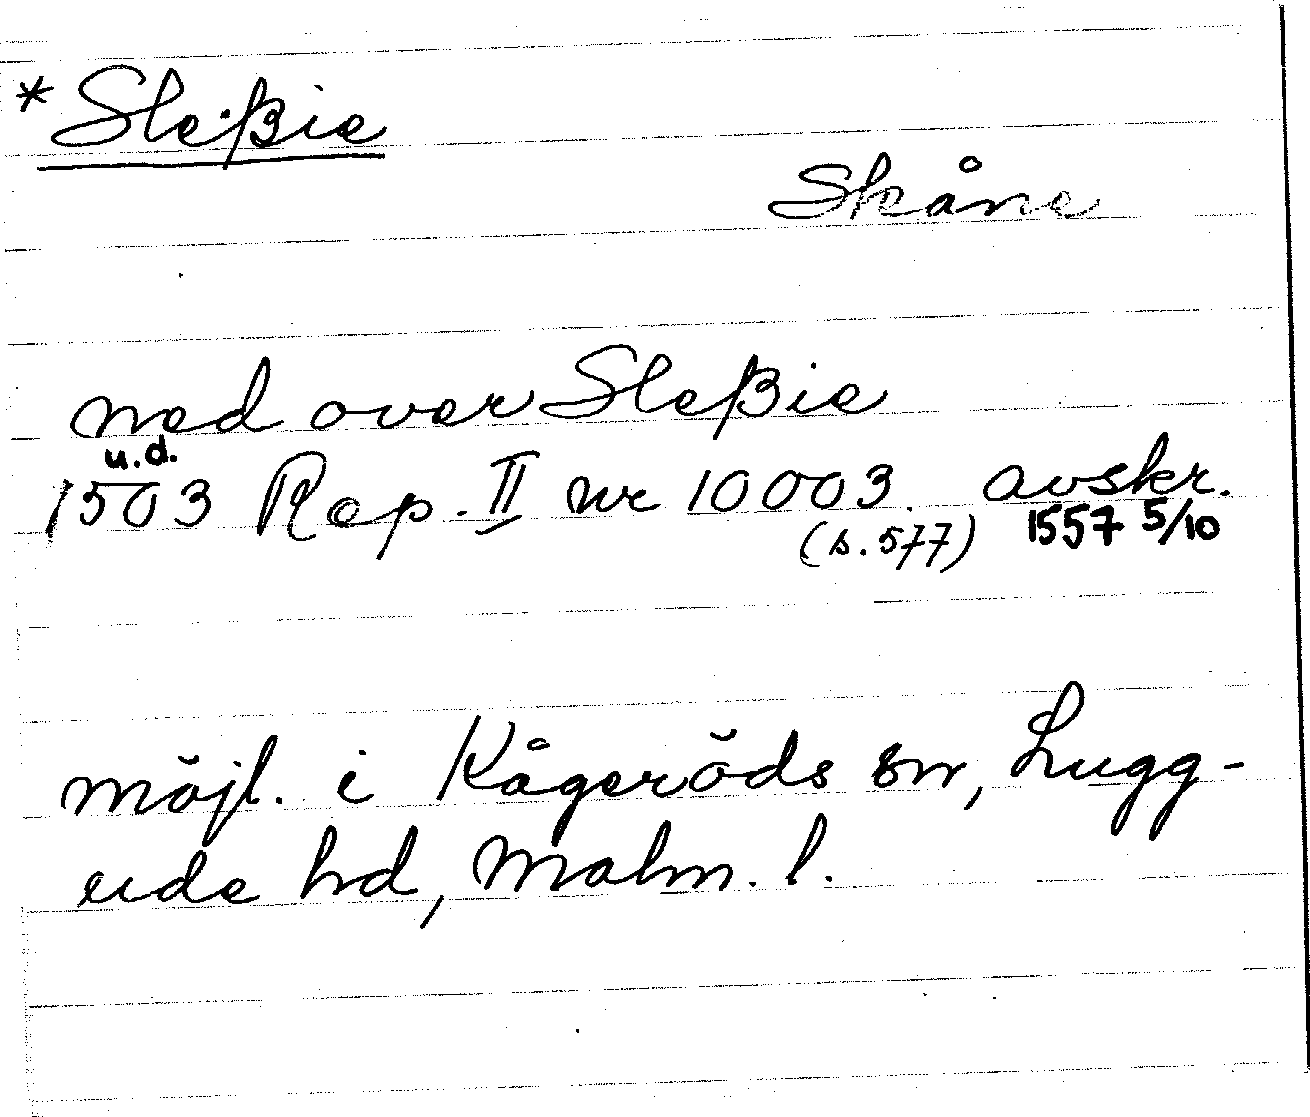 *Sleßie
Skåne
ned over Sleßie
u.d.
1503 Rep. II nr 10003. avskr.
(s. 577) 1557 5/10
möjl. i Kågeröds sn, Lugg-
ude hd, Malm. l.